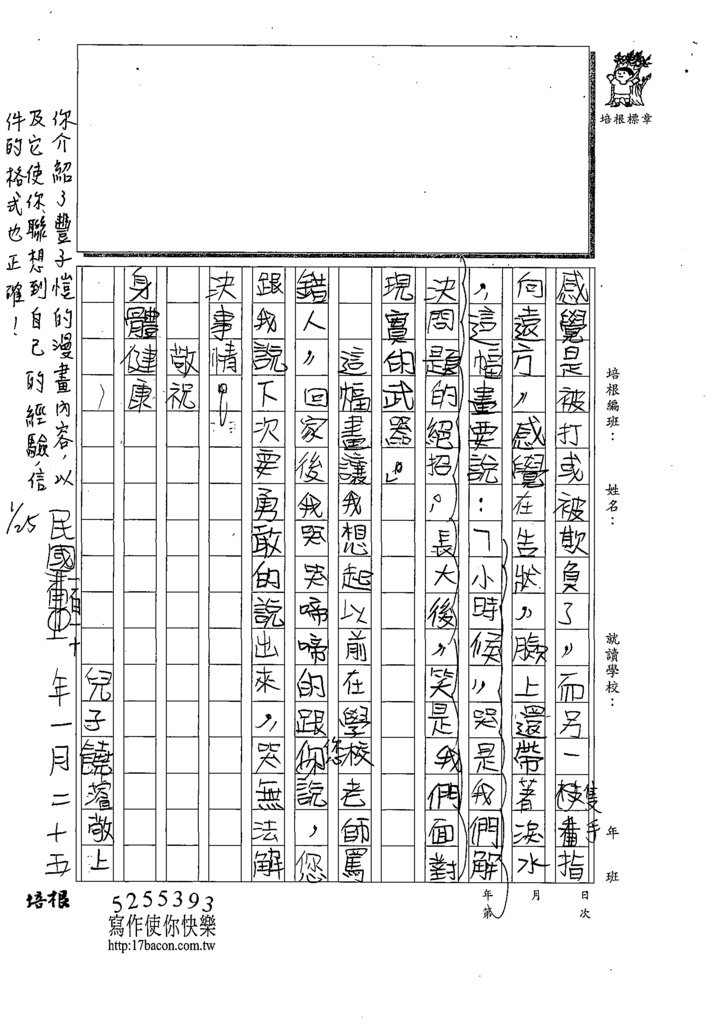 培根標章
培根編班：　姓名：　就讀學校：　年　班
年　月　日
第　次
感覺是被打或被欺負了，而另一隻手指
向遠方，感覺在告狀，臉上還帶著淚水
，這幅畫要說：「小時候，哭是我們解
決問題的絕招；長大後，笑是我們面對
現實的武器。」
這幅畫讓我想起以前在學校老師罵
錯人，回家後我哭哭啼啼的跟你您說，您
跟我說下次要勇敢的說出來，哭無法解
決事情。
敬祝
身體健康
兒子饒濬敬上
民國一百一十年一月二十五
你介紹了豐子愷的漫畫內容，以
及它使你聯想到自己的經驗，信
件的格式也正確！
1/25
培根
5255393
寫作使你快樂
http:17bacon.com.tw